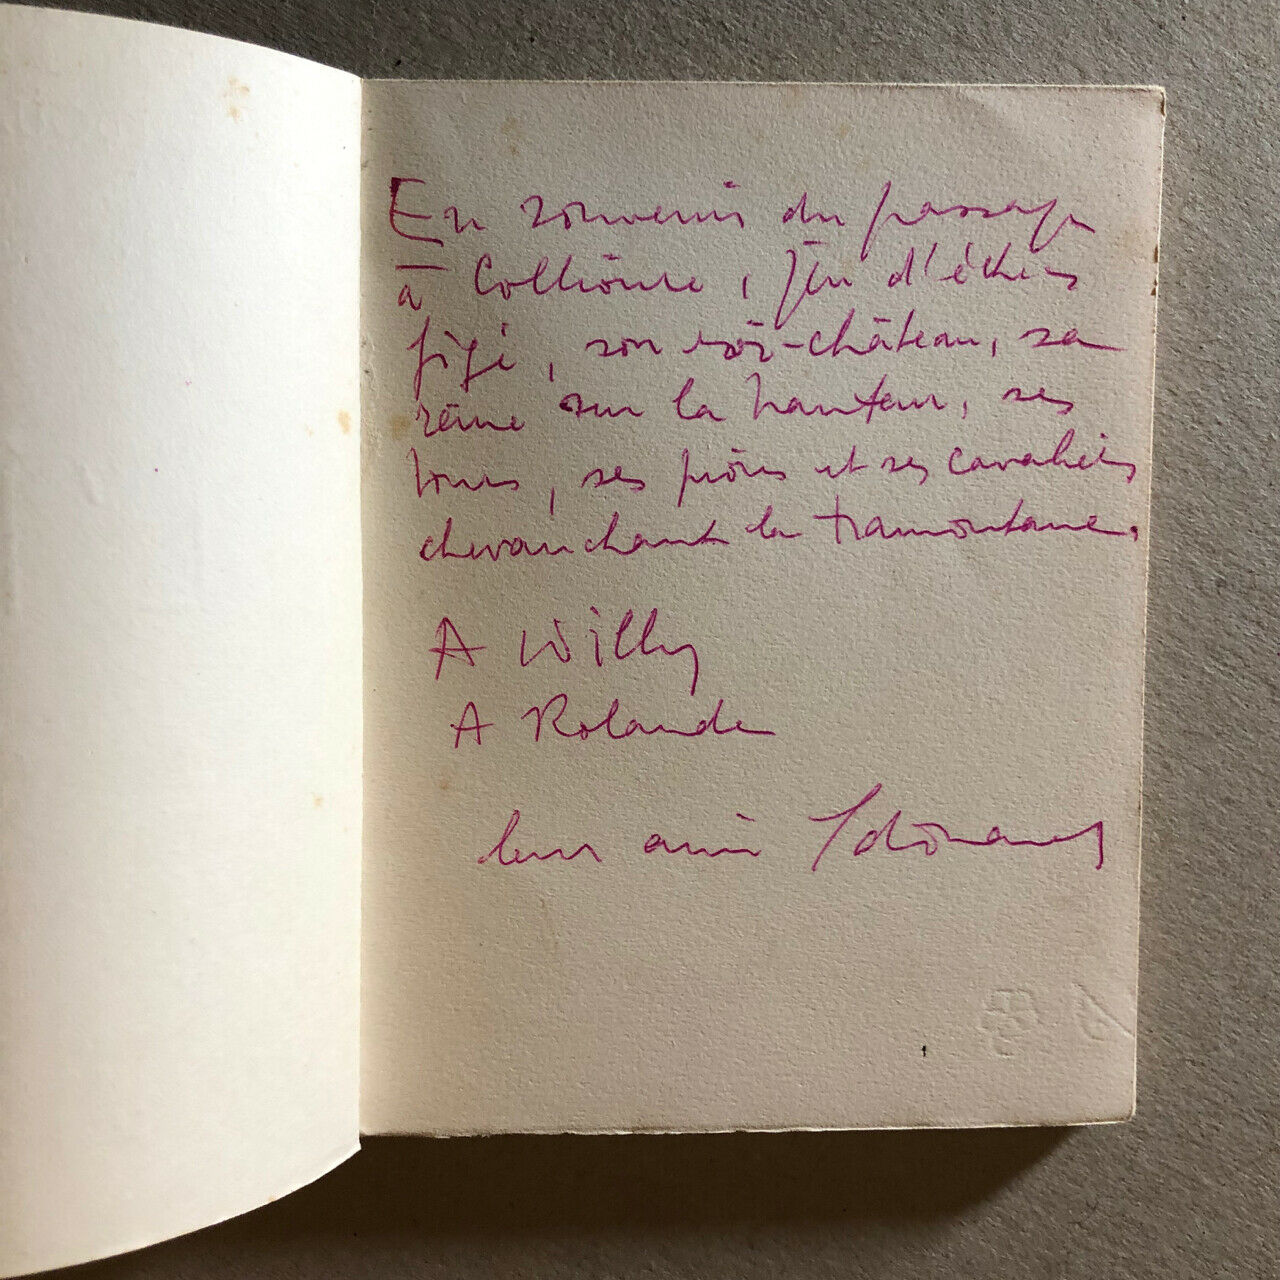 En souvenir du passage
à Collioure, jeu d'échecs
figé, son roi-château, sa
reine sur la hauteur, ses
tours, ses pions et ses cavaliers
chevauchant la tramontane.
A Willy
A Rolande
leur ami Edouard